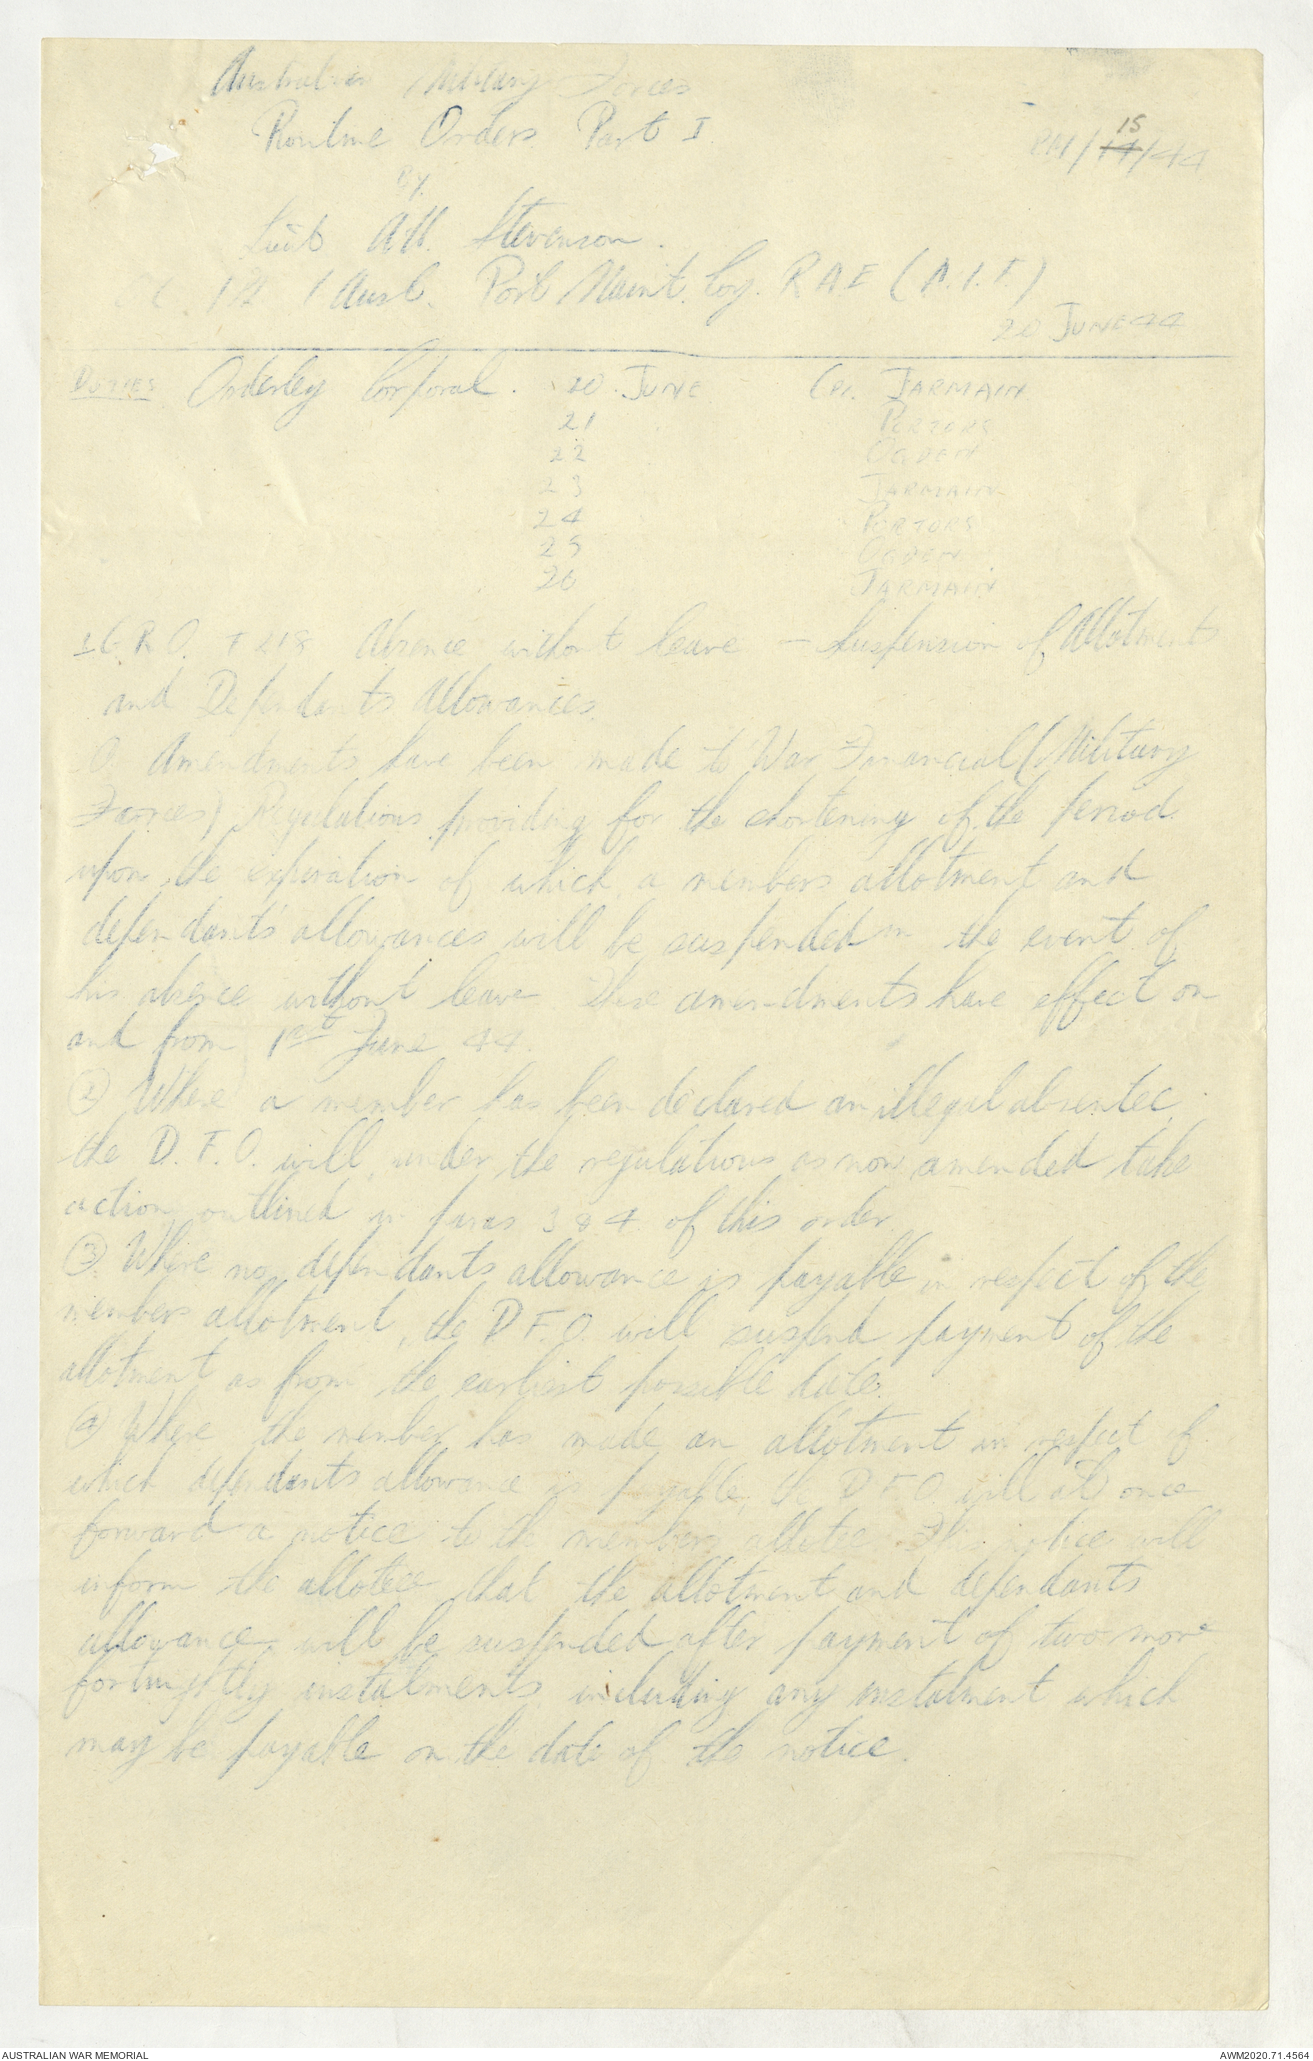 Australian Military Forces
Routine Orders Part I
RM/14/44
15
By
Lieut A.H. Stevenson.
OC. 1 Aust. Port Maint. Coy. RAE (A.I.F.)
20 JUNE 44
DUTIES Orderley Corporal. 20 JUNE CPL. JARMAIN
21 PORTORS
22 OGDEN
23 JARMAIN
24 PORTORS
25 OGDEN
26 JARMAIN
G.R.O. Absence without leave - Suspension of Allotments
and Dependants Allowances.
Amendments have been made to War Financial (Military
Forces) Regulations providing for the shortening of the period
upon the expiration of which a members allotment and
dependants allowances will be suspended in the event of
his absence without leave. These amendments have effect on
and from 1st June 44.
② Where a member has been declared an illegal absentee
the D.F.O. will, under the regulations as now amended take
action outlined in paras 3 & 4 of this order.
③ Where no dependants allowance is payable in respect of the
members allotment, the D.F.O. will suspend payment of the
allotment as from the earliest possible date.
④ Where the member has made an allotment in respect of
which dependants allowance is payable, the D F O will at once
forward a notice to the members allotee. This notice will
inform the allotee that the allotment and dependants
allowance, will be suspended after payment of two more
fortnightly instalments including any instalment which
may be payable on the date of the notice.
AUSTRALIAN WAR MEMORIAL
AWM2020.71.4564